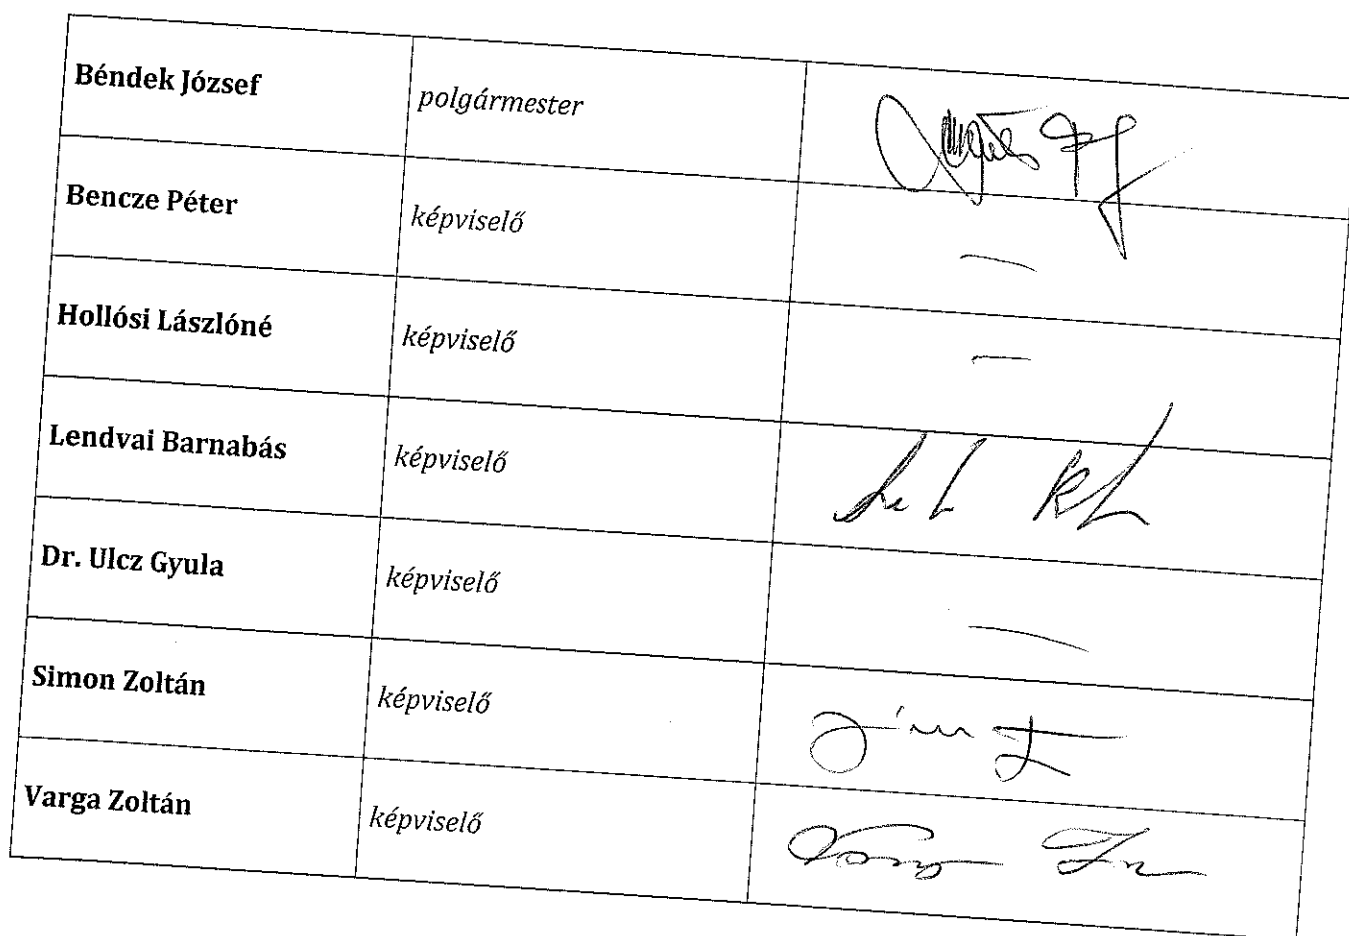 Béndek József polgármester
Bencze Péter képviselő —
Hollósi Lászlóné képviselő —
Lendvai Barnabás képviselő
Dr. Ulcz Gyula képviselő —
Simon Zoltán képviselő
Varga Zoltán képviselő